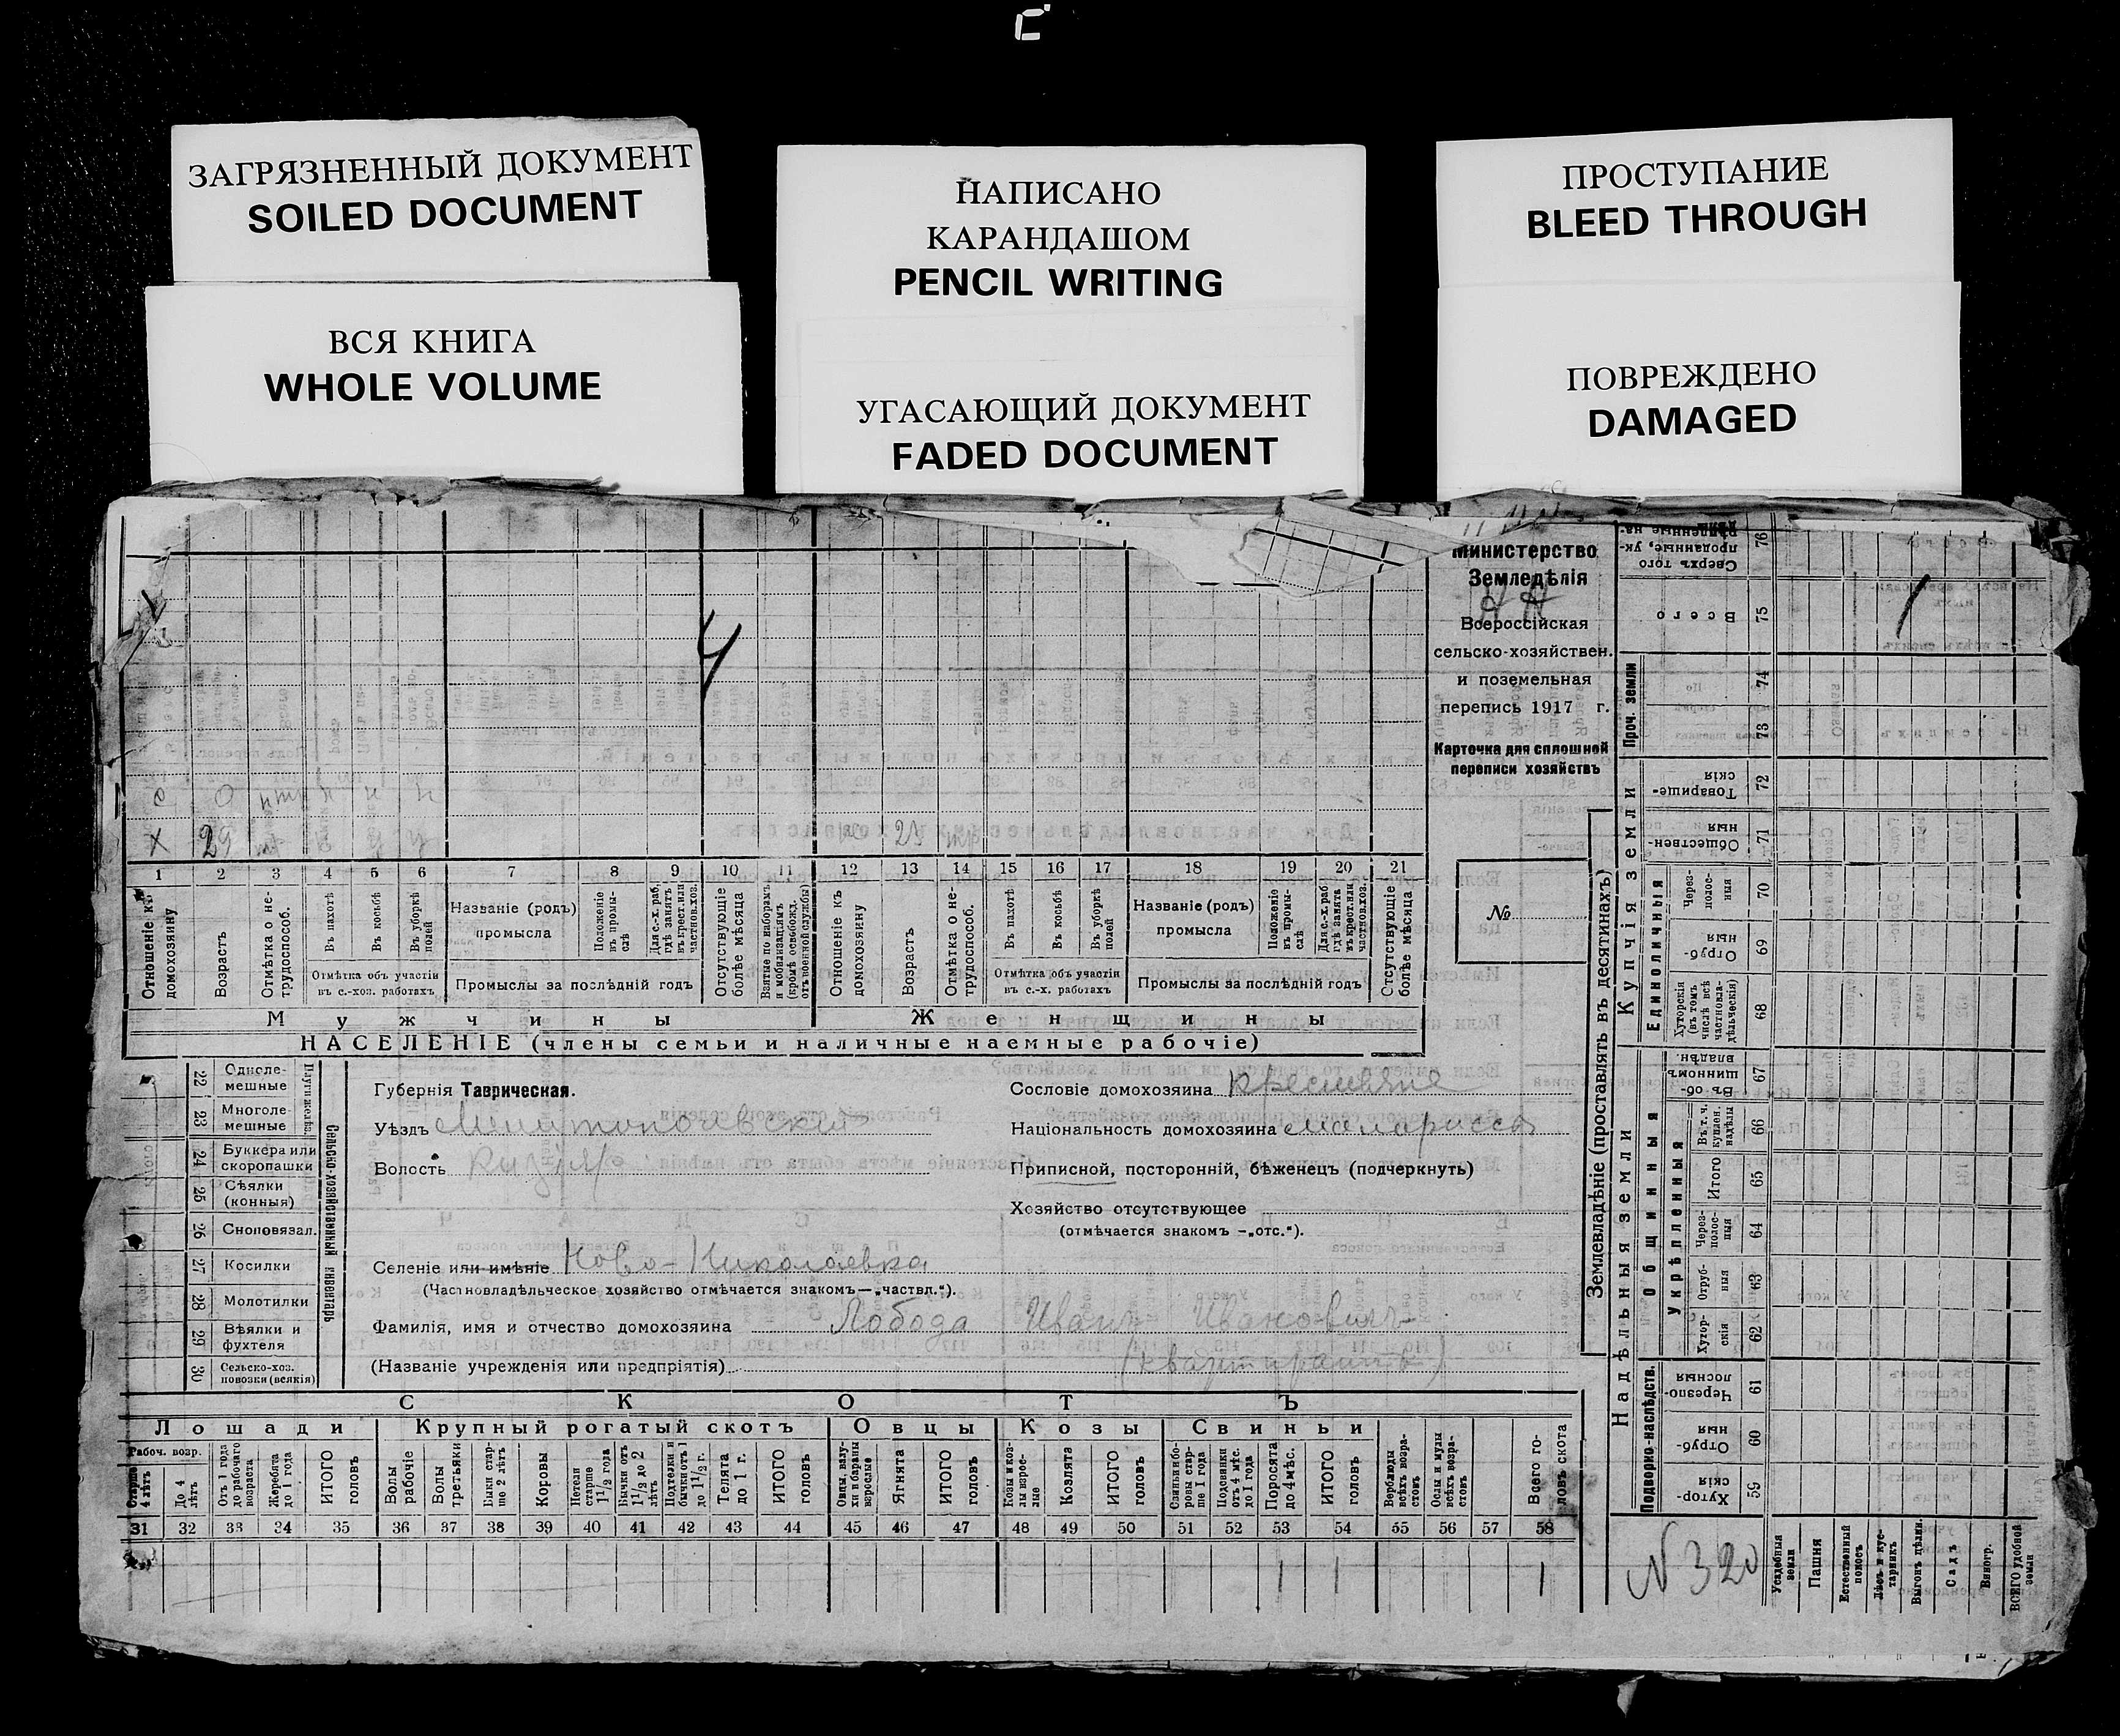 ЗАГРЯЗНЕННЫЙ ДОКУМЕНТ
SOILED DOCUMENT
ВСЯ КНИГА
WHOLE VOLUME
НАПИСАНО
КАРАНДАШОМ
PENCIL WRITING
УГАСАЮЩИЙ ДОКУМЕНТ
FADED DOCUMENT
ПРОСТУПАНИЕ
BLEED THROUGH
ПОВРЕЖДЕНО
DAMAGED
Министерство
Земледѣлія
Всероссійская
сельско-хозяйствен.
и поземельная
перепись 1917 г.
Карточка для сплошной
переписи хозяйствъ
№
4
е О
х 29
25
1 2 3 4 5 6 7 8 9 10 11 12 13 14 15 16 17 18 19 20 21
Отношеніе къ домохозяину
Возрастъ
Отмѣтка о нетрудоспособ.
Въ пахотѣ
Въ косьбѣ
Въ уборкѣ полей
Отмѣтка объ участіи въ с.-хоз. работахъ
Названіе (родъ) промысла
Положеніе въ промыслѣ
Для с.-х. раб. гдѣ занятъ въ крест. или частнов. хоз.
Промыслы за послѣдній годъ
Отсутствующіе болѣе мѣсяца
Взятые по наборамъ и мобилизаціямъ (кромѣ освобожд. отъ военной службы)
Отношеніе къ домохозяину
Возрастъ
Отмѣтка о нетрудоспособ.
Въ пахотѣ
Въ косьбѣ
Въ уборкѣ полей
Отмѣтка объ участіи въ с.-х. работахъ
Названіе (родъ) промысла
Положеніе въ промыслѣ
Для с.-х. раб. гдѣ занята въ крест. или частнов. хоз.
Промыслы за послѣдній годъ
Отсутствующіе болѣе мѣсяца
Мужчины Женщины
НАСЕЛЕНІЕ (члены семьи и наличные наемные рабочіе)
22 Однолемешные
23 Многолемешные
Плуги желѣз.
24 Буккера или скоропашки
25 Сѣялки (конныя)
26 Сноповязал.
27 Косилки
28 Молотилки
29 Вѣялки и фухтеля
30 Сельско-хоз. повозки (всякія)
Сельско-хозяйственный инвентарь
Губернія Таврическая.
Уѣздъ Мелитопольскій
Волость
Селеніе или имѣніе Ново-Николаевка
(Частновладѣльческое хозяйство отмѣчается знакомъ—„частвл.“).
Фамилія, имя и отчество домохозяина Лобода Иванъ Ивановичъ
(Названіе учрежденія или предпріятія) (квартирантъ)
Сословіе домохозяина крестьяне
Національность домохозяина малороссъ
Приписной, посторонній, бѣженецъ (подчеркнуть)
Хозяйство отсутствующее
(отмѣчается знакомъ —„отс.“).
СКОТЪ
Лошади Крупный рогатый скотъ Овцы Козы Свиньи
Рабоч. возр.
Старше 4 лѣтъ
До 4 лѣтъ
Отъ 1 года до рабочаго возраста
Жеребята до 1 года
ИТОГО головъ
Волы рабочіе
Волы третьяки
Быки старше 2 лѣтъ
Коровы
Нетели старше 1 1/2 года
Бычки отъ 1 1/2 до 2 лѣтъ
Подтелки и бычки отъ 1 до 1 1/2 г.
Телята до 1 г.
ИТОГО головъ
Овцы, валухи и бараны взрослые
Ягнята
ИТОГО головъ
Козы и козлы взрослые
Козлята
ИТОГО головъ
Свиньи и боровы старше 1 года
Подсвинки отъ 4 мѣс. до 1 года
Поросята до 4 мѣс.
ИТОГО головъ
Верблюды всѣхъ возрастовъ
Ослы и мулы всѣхъ возрастовъ
Всего головъ скота
31 32 33 34 35 36 37 38 39 40 41 42 43 44 45 46 47 48 49 50 51 52 53 54 55 56 57 58
1 1 1
Землевладѣніе (проставлять въ десятинахъ)
Надѣльныя земли
Купчія земли
Проч. земли
Подворно-наслѣдств.
Общинныя
Укрѣпленныя
Единоличныя
Сверхъ того проданные, укрѣпленные на- 76
Всего 75
74
73
Товарищескія 72
Общественныя 71
Черезполосныя 70
Отрубныя 69
Хуторскія (въ томъ числѣ всѣ частновладѣльческія) 68
Въ общинномъ владѣн. 67
Въ т. ч. куплен. надѣлы 66
Итого 65
Черезполосныя 64
Отрубныя 63
Хуторскія 62
Черезполосныя 61
Отрубныя 60
Хуторскія 59
N 320
Усадебныя земли
Пашня
Естественный покосъ
Лѣсъ и кустарникъ
Выгонъ цѣлин.
Садъ
Виногр.
ВСЕГО удобной земли